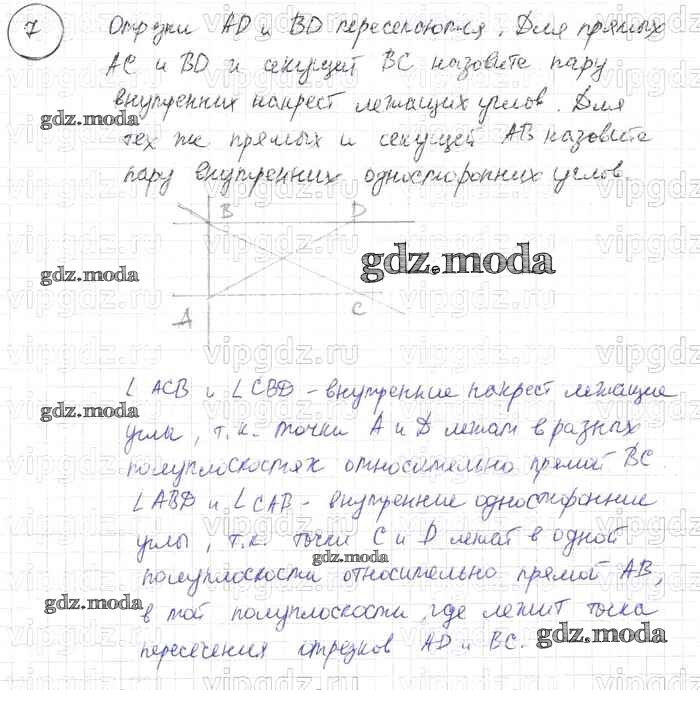 7
Отрезки AD и BD пересекаются. Для прямых
AC и BD и секущей BC назовите пару
внутренних накрест лежащих углов. Для
gdz.moda
тех же прямых и секущей AB назовите
пару внутренних односторонних углов.
B D
gdz.moda
gdz.moda
A C
∠ACB и ∠CBD - внутренние накрест лежащие
gdz.moda
углы, т.к. точки A и D лежат в разных
полуплоскостях относительно прямой BC.
∠ABD и ∠CAB - внутренние односторонние
gdz.moda
углы, т.к. точки C и D лежат в одной
gdz.moda
полуплоскости относительно прямой AB,
gdz.moda
в той полуплоскости, где лежит точка
пересечения отрезков AD и BC.
gdz.moda
vipgdz.ru